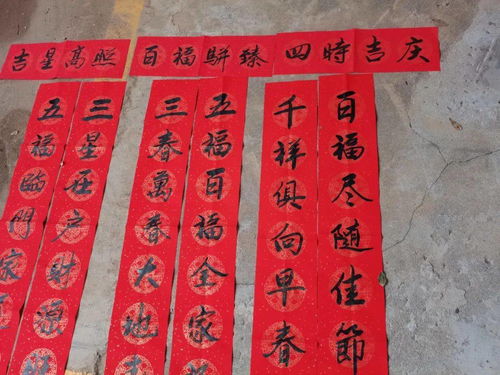 吉星高照
百福駢臻
四時吉庆
百福尽随佳節
千祥俱向早春
五福百福全家
三春萬春大地
三星在户財源
五福臨門家